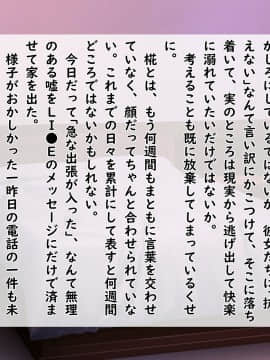 かしろにしているではないか　彼女たちに抗
えない」なんて言い訳にかこつけて、そこに落ち
着いて、実のところは現実から逃げ出して快楽
に溺れていたいだけではないか。
　考えることも既に放棄してしまっているくせ
に。
　椛とは、もう何週間もまともに言葉を交わせ
ていなく、顔だってちゃんと合わせられていな
い。これまでの日々を累計にして表すと何週間
どころではないかもしれない。
　今日だって「急な出張が入った」、なんて無理
のある嘘をLI●Eのメッセージにだけで済ま
せて家を出た。
　様子がおかしかった一昨日の電話の一件も未